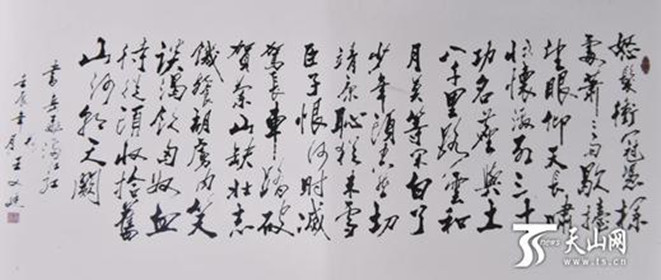 怒髮衝冠憑欄
處蕭々雨歇擡
望眼仰天長嘯
壯懷激烈三十
功名塵與土
八千里路雲和
月莫等閑白了
少年頭空悲切
靖康恥猶未雪
臣子恨何時滅
駕長車踏破
賀蘭山缺壯志
飢餐胡虜肉笑
談渴飲匈奴血
待從頭收拾舊
山河朝天闕
書岳飛滿江紅
壬辰年月王文
TSnews 天山网
www.ts.cn